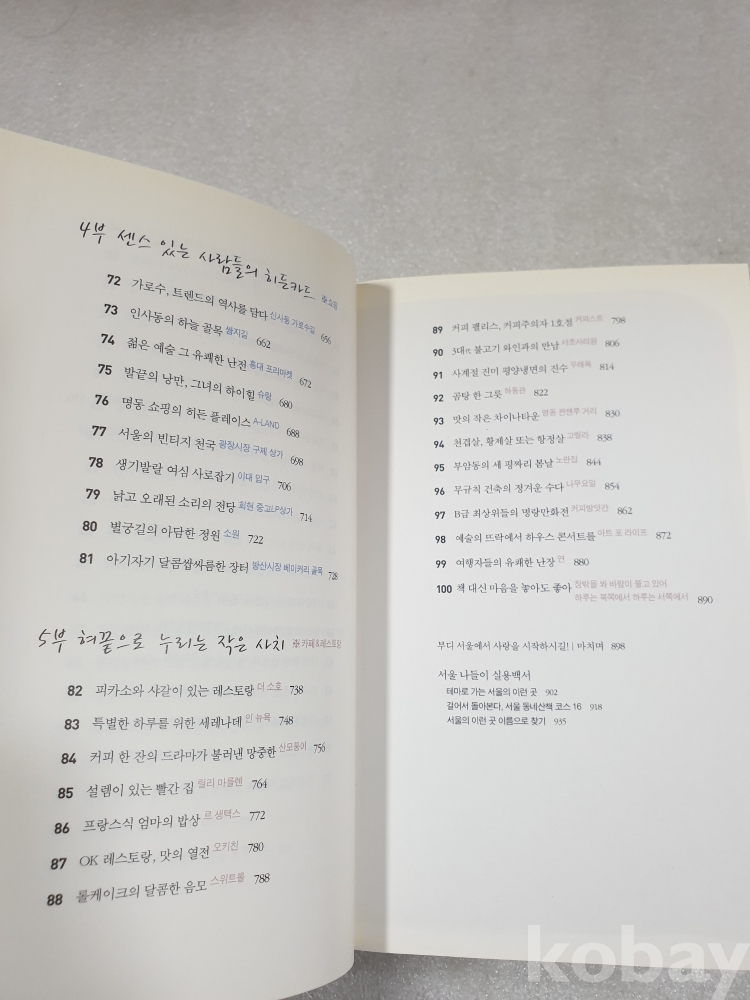 4부 센스 있는 사람들의 히든카드 ※ 쇼핑
72 가로수, 트렌드의 역사를 담다 신사동 가로수길 656
73 인사동의 하늘 골목 쌈지길 662
74 젊은 예술 그 유쾌한 난전 홍대 프리마켓 672
75 발끝의 낭만, 그녀의 하이힐 슈랑 680
76 명동 쇼핑의 히든 플레이스 A-LAND 688
77 서울의 빈티지 천국 광장시장 구제 상가 698
78 생기발랄 여심 사로잡기 이대 입구 706
79 낡고 오래된 소리의 전당 회현 중고LP상가 714
80 별궁길의 아담한 정원 소원 722
81 아기자기 달콤쌉싸름한 장터 방산시장 베이커리 골목 728
5부 혀끝으로 누리는 작은 사치 ※ 카페&레스토랑
82 피카소와 샤갈이 있는 레스토랑 더 소호 738
83 특별한 하루를 위한 세레나데 인 뉴욕 748
84 커피 한 잔의 드라마가 불러낸 망중한 산모퉁이 756
85 설렘이 있는 빨간 집 릴리 마를렌 764
86 프랑스식 엄마의 밥상 르 생텍스 772
87 OK 레스토랑, 맛의 열전 오키친 780
88 롤케이크의 달콤한 음모 스위트롤 788
89 커피 팰리스, 커피주의자 1호점 커피스트 798
90 3대째 불고기 와인과의 만남 서초사리원 806
91 사계절 진미 평양냉면의 진수 우래옥 814
92 곰탕 한 그릇 하동관 822
93 맛의 작은 차이나타운 명동 관첸루 거리 830
94 천겹살, 황제살 또는 항정살 고릴라 838
95 부암동의 세 평짜리 봄날 노란집 844
96 무규칙 건축의 정겨운 수다 나무요일 854
97 B급 최상위들의 명랑만화전 커피방앗간 862
98 예술의 뜨락에서 하우스 콘서트를 아트 포 라이프 872
99 여행자들의 유쾌한 난장 연 880
100 책 대신 마음을 놓아도 좋아 창밖을 봐 바람이 불고 있어
하루는 북쪽에서 하루는 서쪽에서 890
부디 서울에서 사랑을 시작하시길! | 마치며 898
서울 나들이 실용백서
테마로 가는 서울의 이런 곳 902
걸어서 돌아본다, 서울 동네산책 코스 16 918
서울의 이런 곳 이름으로 찾기 935
kobay